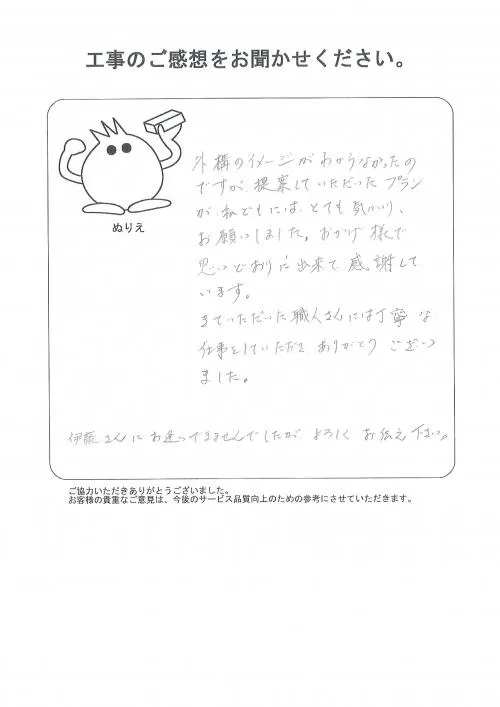 工事のご感想をお聞かせください。
ぬりえ
外構のイメージがわからなかったの
ですが、提案していただいたプラン
が私どもには、とても気にいり、
お願いしました。おかげ様で
思いどおりに出来て感謝して
います。
きていただいた職人さんには丁寧な
仕事をしていただき ありがとう ござい
ました。
伊藤さんに お逢いできませんでしたが よろしく お伝え下さい。
ご協力いただきありがとうございました。
お客様の貴重なご意見は、今後のサービス品質向上のための参考にさせていただきます。